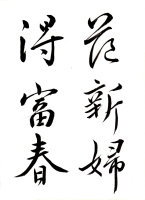 范新婦
得富春